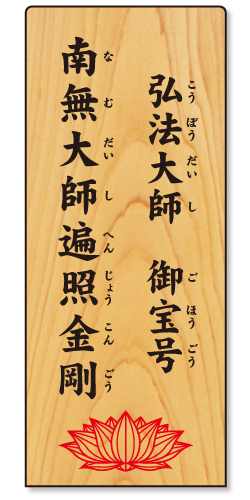 弘法大師　御宝号
こうぼうだいし　ごほうごう
南無大師遍照金剛
なむだいしへんじょうこんごう